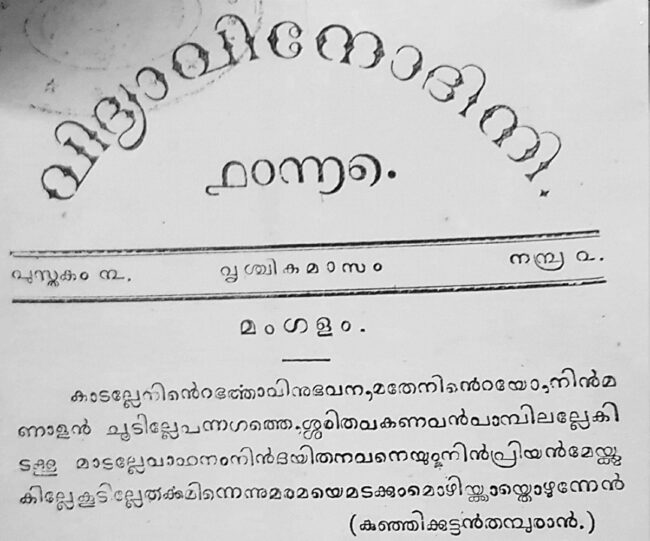 വിദ്യാവിനോദിനി.
൧൦൬൭.
പുസ്തകം ൩. വൃശ്ചികമാസം നമ്പ്ര ൨.
മംഗളം.
കാടല്ലേനിൻെറഭൎത്താവിനുഭവന,മതേനിൻെറയോ,നിൻമ
ണാളൻ ചൂടില്ലേപന്നഗത്തെ.ശ്ശരിതവകണവൻപാമ്പിലല്ലേകി
ടപ്പൂ മാടല്ലേവാഹനംനിൻദയിതനവനെയും നിൻപ്രിയൻമേയ്ക്കു
കില്ലേകൂടില്ലേതൎക്കമിന്നെന്നുമരമയെമടക്കുംമൊഴിയ്ക്കായ്തൊഴുന്നേൻ
(കുഞ്ഞിക്കുട്ടൻതമ്പുരാൻ.)